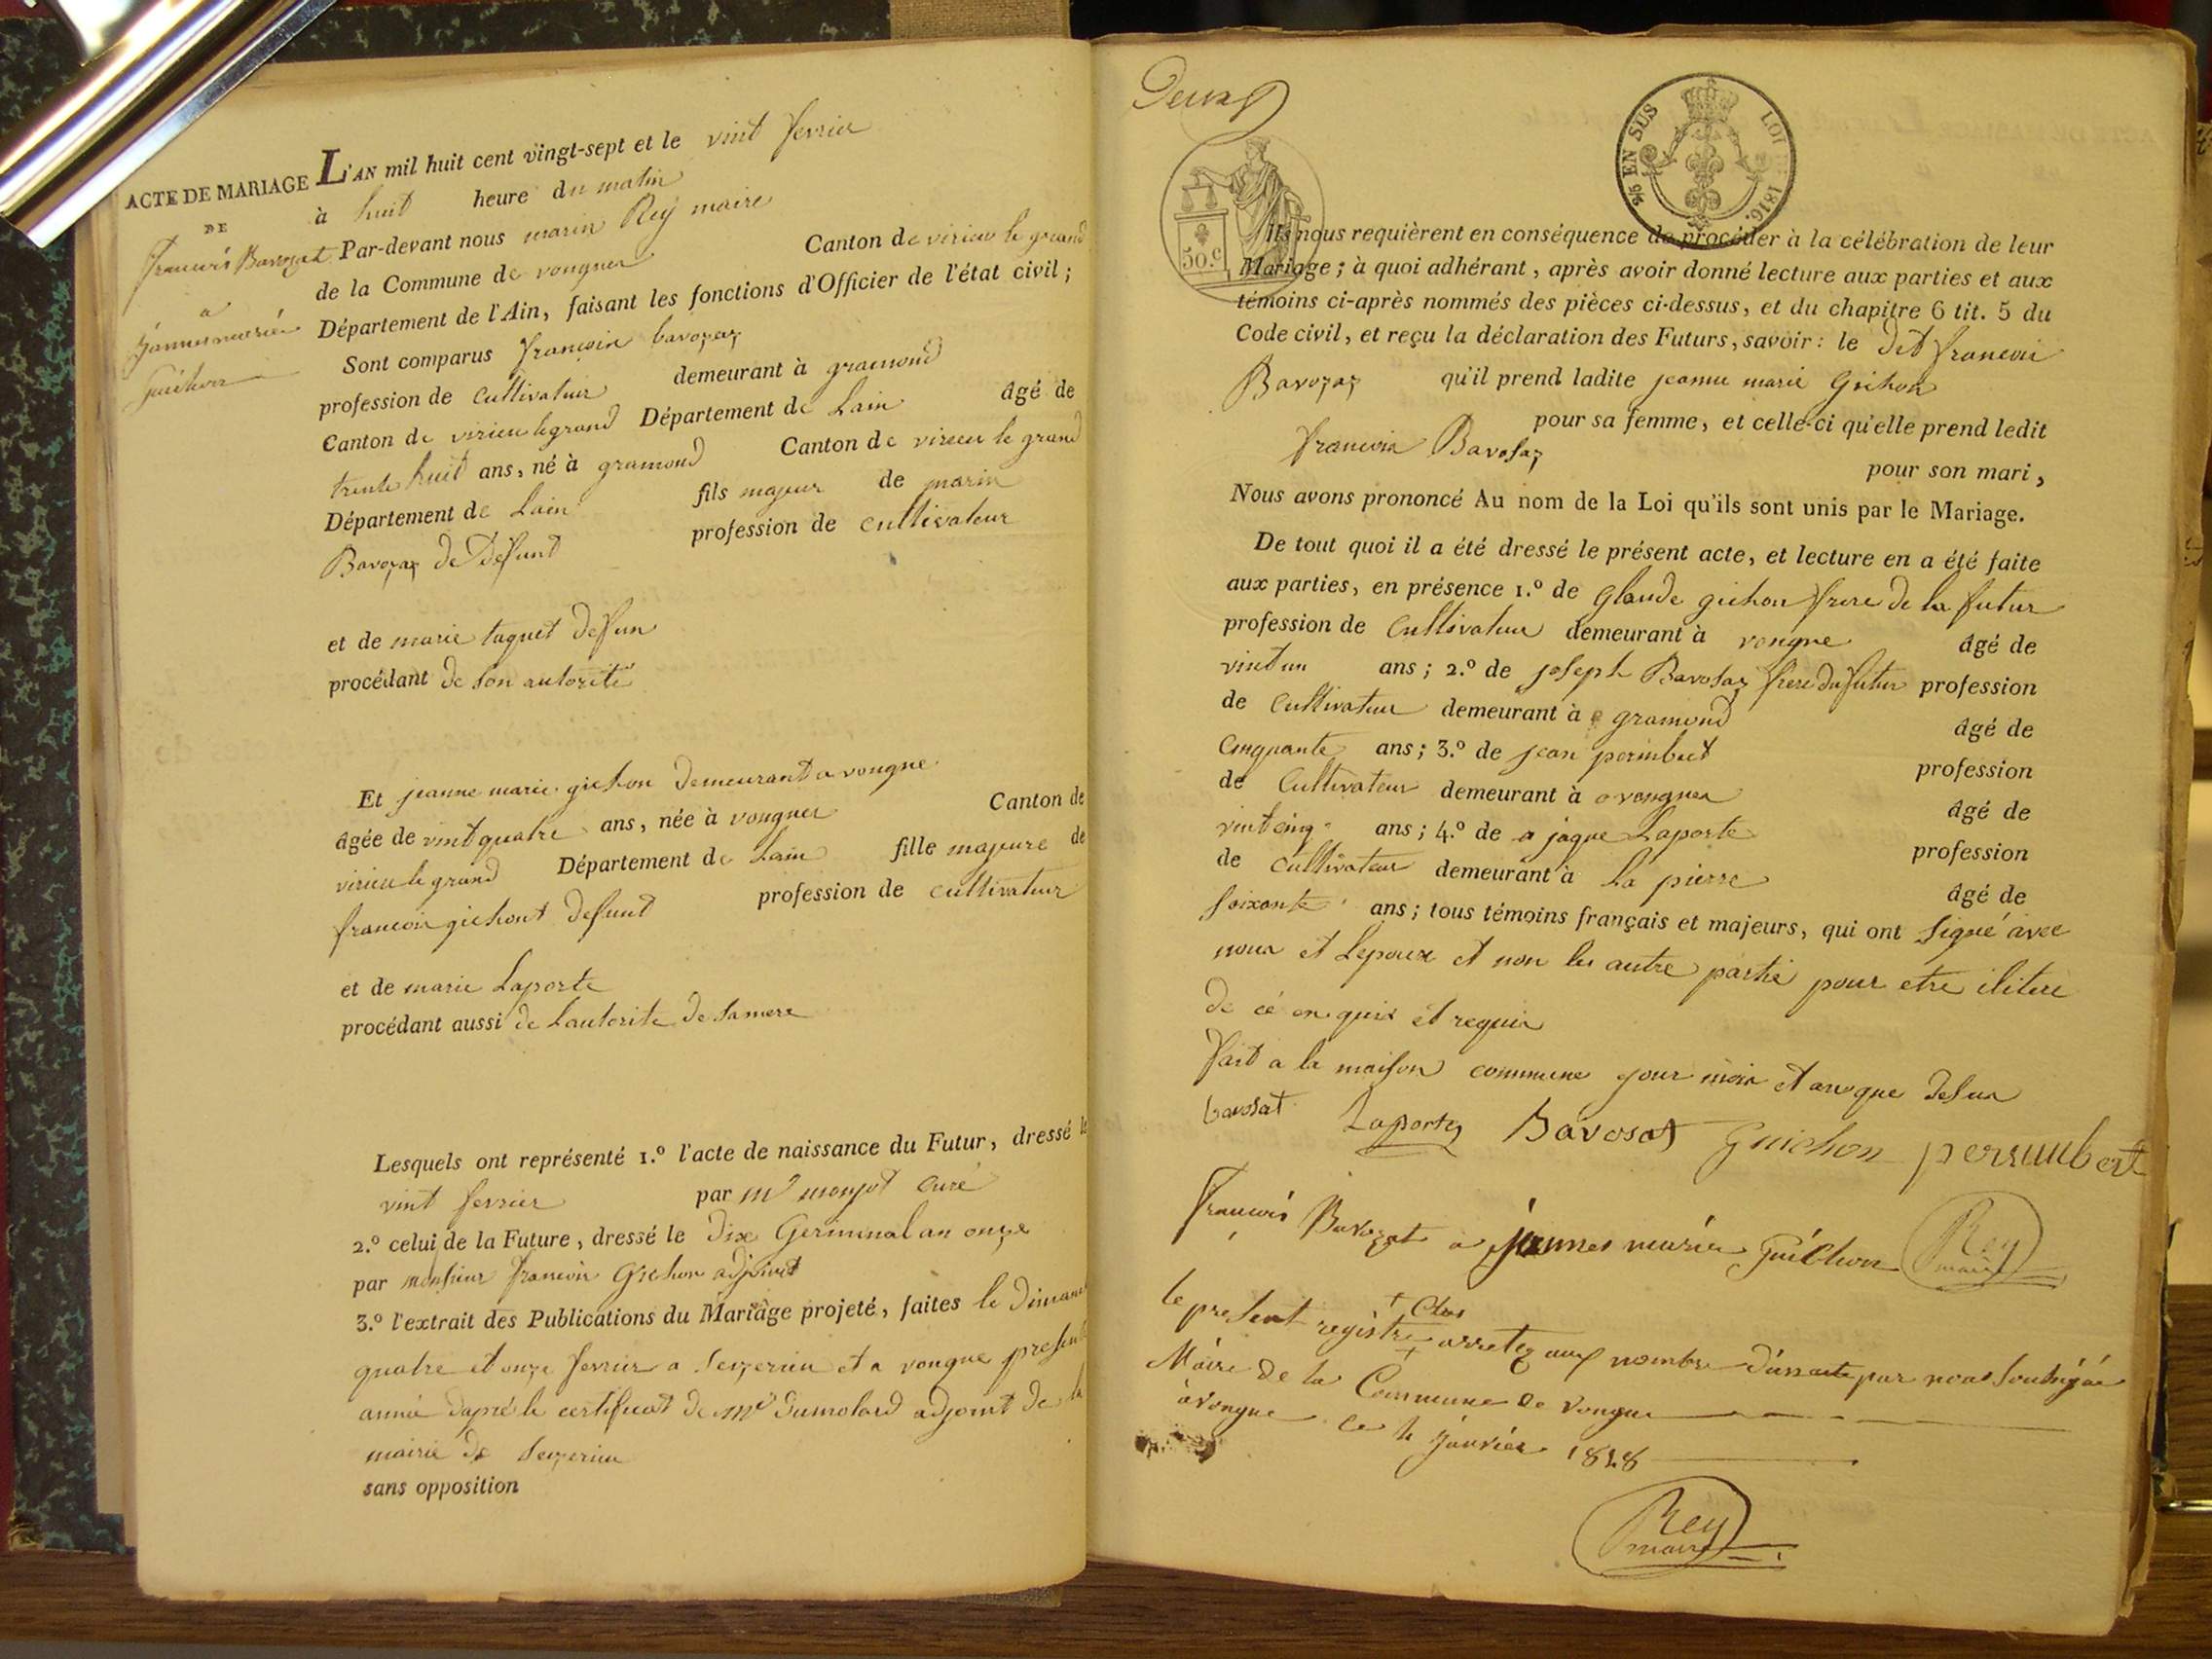 ACTE DE MARIAGE
DE
François Bavozat
a
jannes marié
Guichon
L'AN mil huit cent vingt-sept et le vint fevrier
à huit heure du matin
Par-devant nous marin Rey maire
de la Commune de vongnes Canton de virieu le grand
Département de l'Ain, faisant les fonctions d'Officier de l'état civil;
Sont comparus francois bavozaz
profession de cultivateur demeurant à gramond
Canton de virieu legrand Département de Lain âgé de
trente huit ans, né à gramond Canton de virieu le grand
Département de Lain fils majeur de marin
Bavozaz de Defunt profession de cultivateur
et de marie taquet defun
procédant de son autorité
Et jeanne marie gichon demeurant a vongne
âgée de vint quatre ans, née à vongnes Canton de
virieu le grand Département de Lain fille majeure de
francois gichont defunt profession de cultivateur
et de marie Laporte
procédant aussi de Lautorite de samere
Lesquels ont représenté 1.º l'acte de naissance du Futur, dressé le
vint fevrier par mr monjot curé
2.º celui de la Future, dressé le dix Germinal an onze
par monsieur francois Gichon adjoint
3.º l'extrait des Publications du Mariage projeté, faites le dimanc
quatre et onze fevrier a seyzerieu et a vongne presente
année dapré le certificat de mr dumolard adjoint de la
mairie de seyzerieu
sans opposition
Deux
50.c
EN SUS LOI DE 1816.
Ils nous requièrent en conséquence de procéder à la célébration de leur
Mariage; à quoi adhérant, après avoir donné lecture aux parties et aux
témoins ci-après nommés des pièces ci-dessus, et du chapitre 6 tit. 5 du
Code civil, et reçu la déclaration des Futurs, savoir: le dit francois
Bavozaz qu'il prend ladite jeanne marie Gichon
pour sa femme, et celle-ci qu'elle prend ledit
francois Bavosaz pour son mari,
Nous avons prononcé Au nom de la Loi qu'ils sont unis par le Mariage.
De tout quoi il a été dressé le présent acte, et lecture en a été faite
aux parties, en présence 1.º de glaude gichon frere de la futur
profession de Cultivateur demeurant à vongne âgé de
vint un ans; 2.º de joseph Bavosaz frere du futur profession
de cultivateur demeurant à gramond âgé de
cinquante ans; 3.º de jean perimbert profession
de Cultivateur demeurant à a vongnes âgé de
vint cinq ans; 4.º de a jaque Laporte profession
de cultivateur demeurant à La pierre âgé de
soixante ans; tous témoins français et majeurs, qui ont signé avec
nous et Lepoux et non les autre partie pour etre ilitere
de cé enquis et requis
fait a la maison commune jour mois et an que desus
bavosat Laporte Bavosat Guichon perrumbert
François Bavozat a jeannes marie Guichon Rey maire
+ Clos
le present registre arretez aux nombre d'un acte par nous soussigné
Maire de la Commune de vongne
à vongne ce 4 janvier 1828
Rey
maire